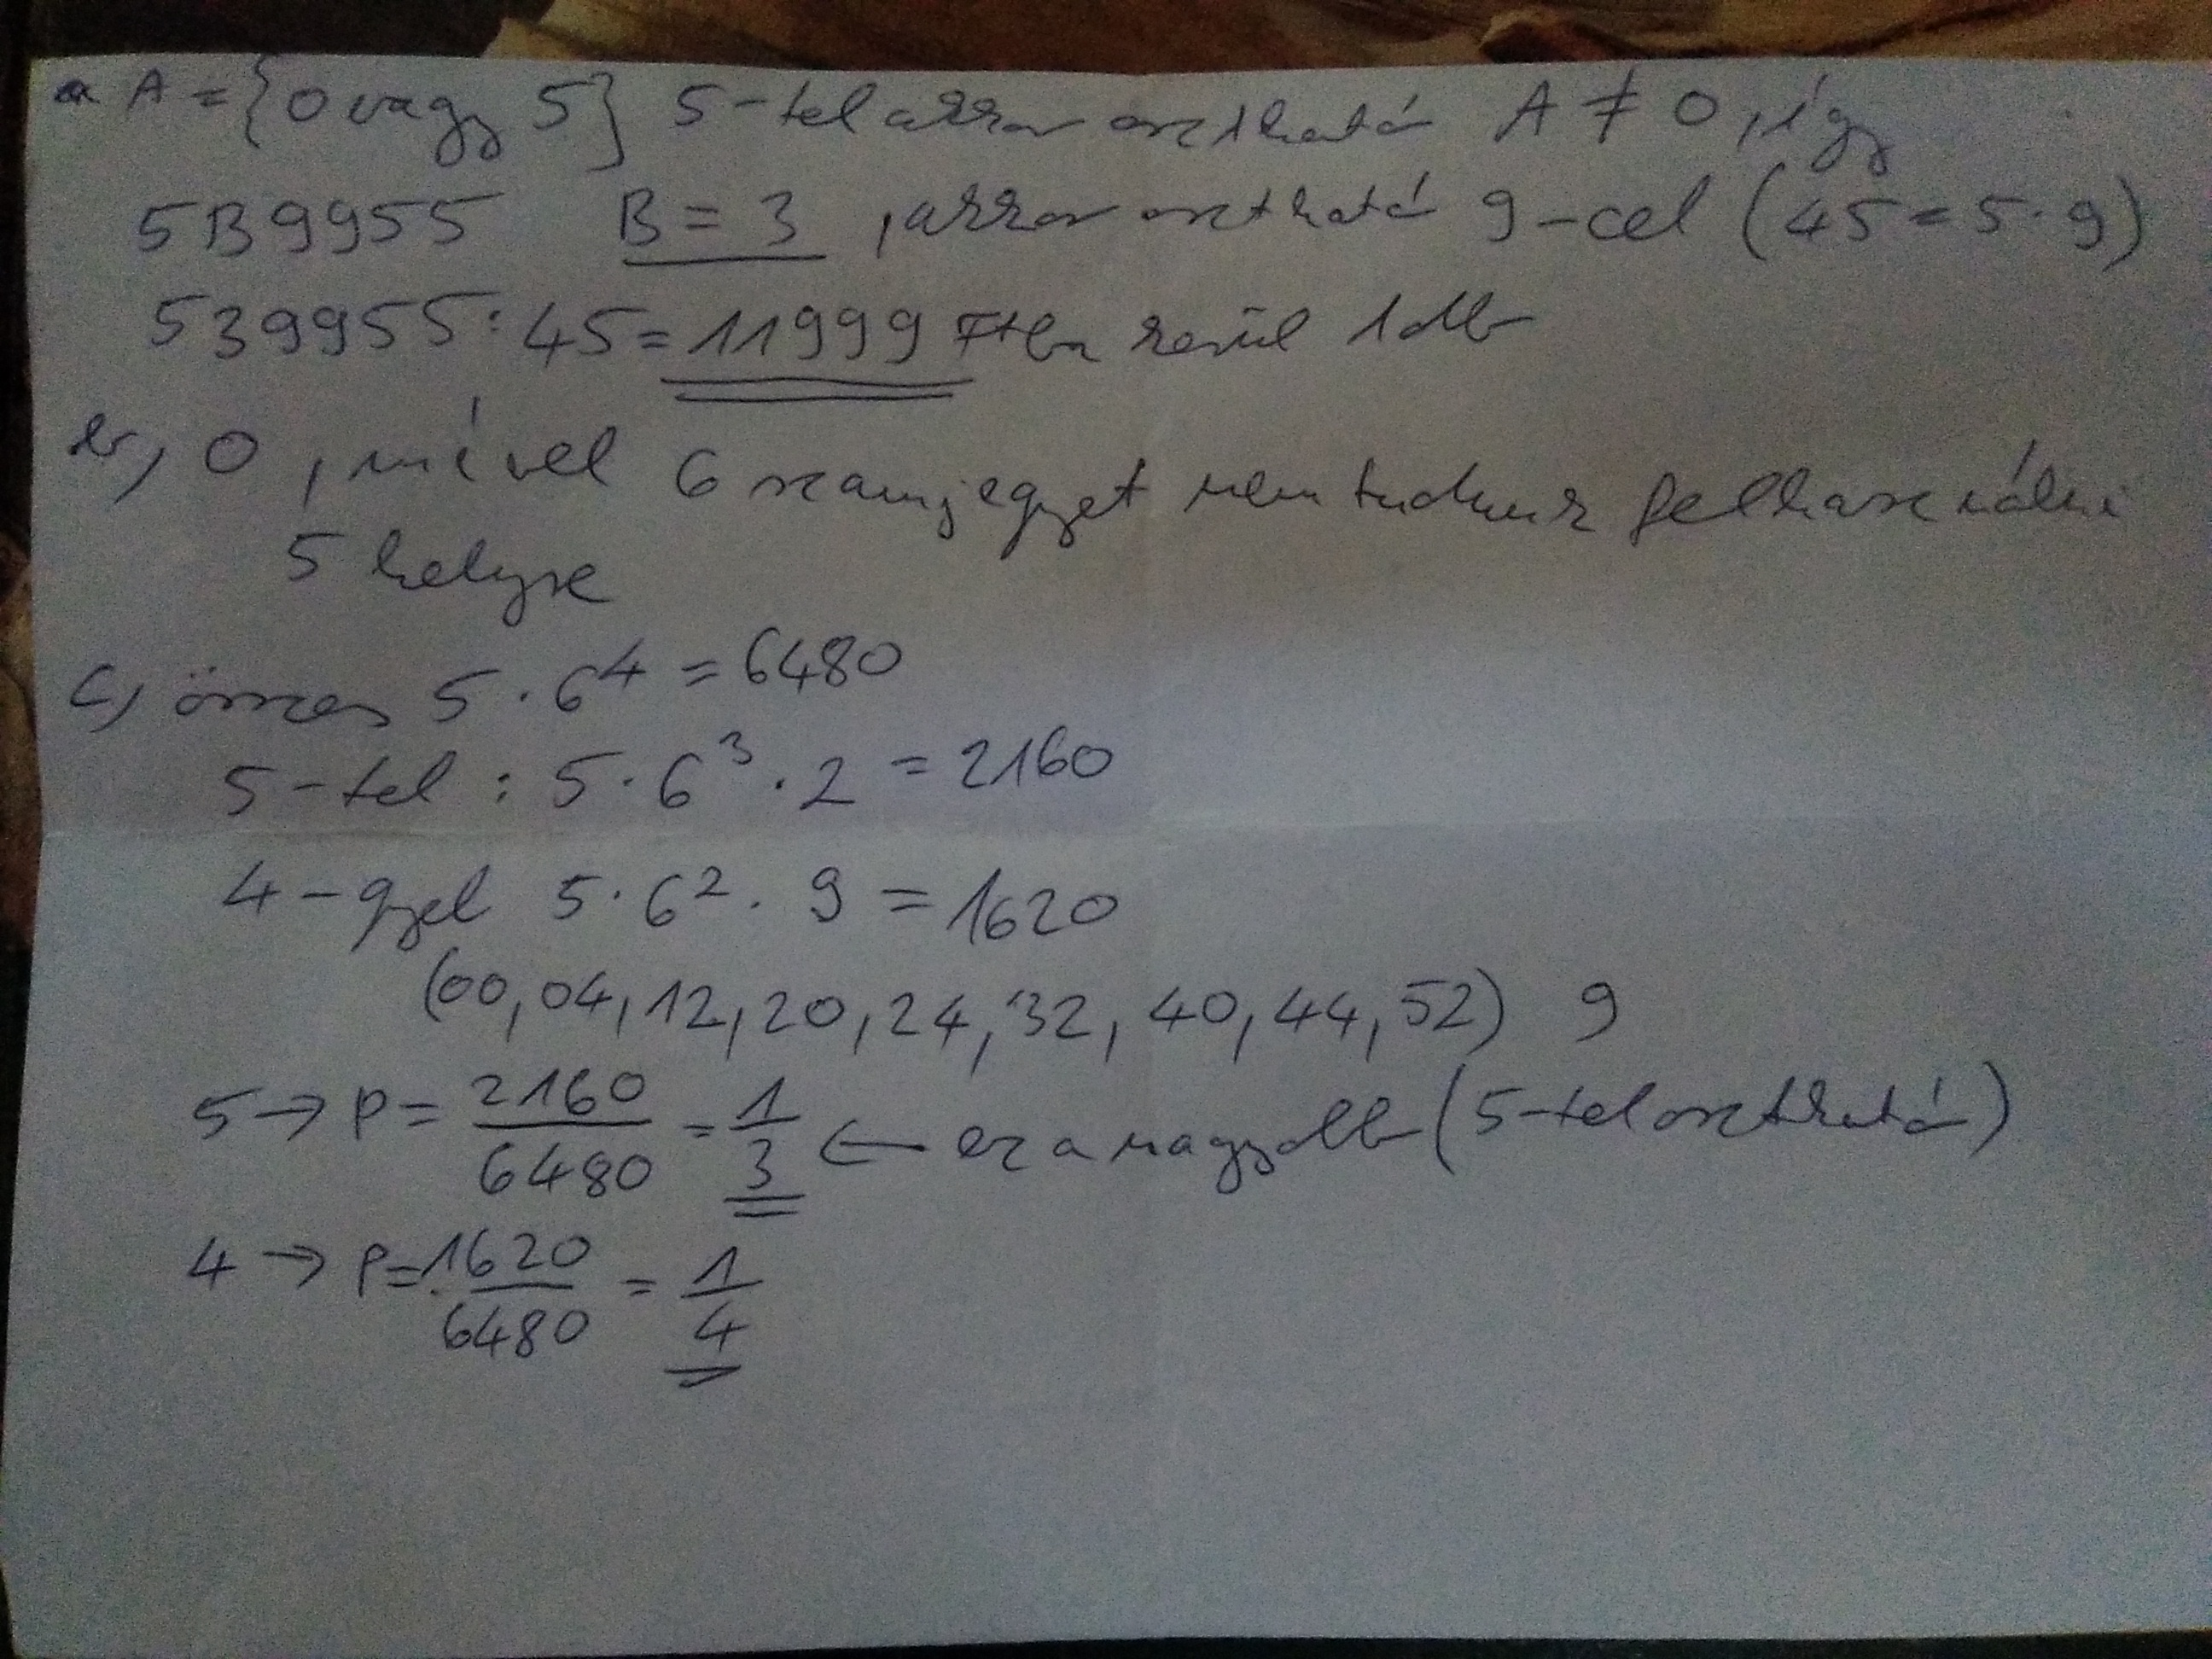 a A = {0 vagy 5} 5-tel akkor osztható A ≠ 0, így
5B9955 B = 3, akkor osztható 9-cel (45 = 5·9)
539955 : 45 = 11999 Ft-ba kerül 1 db
b, 0, mível 6 számjegyet nem tudunk felhasználni
5 helyre
c, összes 5 · 6⁴ = 6480
5-tel : 5 · 6³ · 2 = 2160
4-gyel 5 · 6² · 9 = 1620
(00, 04, 12, 20, 24, 32, 40, 44, 52) 9
5 → P = 2160/6480 = 1/3 ← ez a nagyobb (5-tel osztható)
4 → P = 1620/6480 = 1/4